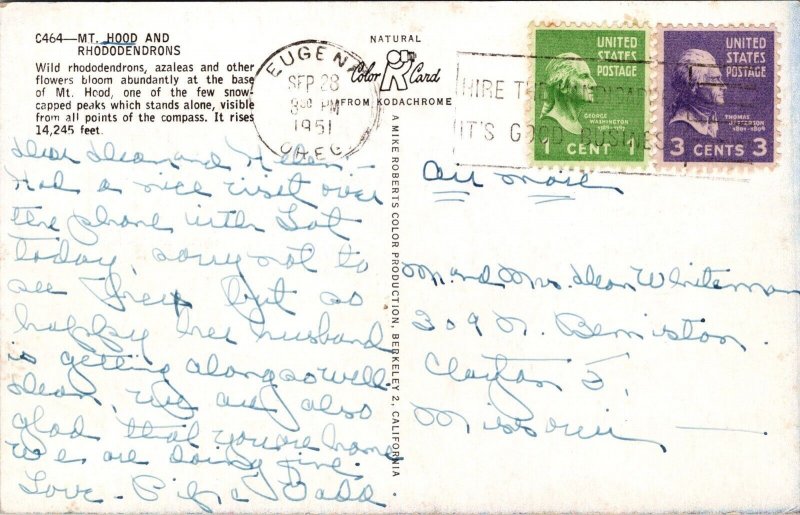 C464—MT. HOOD AND
RHODODENDRONS
Wild rhododendrons, azaleas and other
flowers bloom abundantly at the base
of Mt. Hood, one of the few snow-
capped peaks which stands alone, visible
from all points of the compass. It rises
14,245 feet.
NATURAL
Color Card
FROM KODACHROME
EUGENE
SEP 28
3 PM
1951
OREG
HIRE THE
IT'S GOOD BUSINESS
UNITED
STATES
POSTAGE
GEORGE
WASHINGTON
1789-1797
1 CENT 1
UNITED
STATES
POSTAGE
THOMAS
JEFFERSON
1801-1809
3 CENTS 3
A MIKE ROBERTS COLOR PRODUCTION, BERKELEY 2, CALIFORNIA
Dear Dean and Helen—
Had a nice visit over
the phone with Dot
today, sorry not to
see her but so
happy her husband
is getting along so well.
Dean, we are also
glad that you are home
We are doing fine.
Love— &  Dadd
Air Mail
Mr. and Mrs. Dean Whiteman
309 N. Bemiston
Clayton 5,
Missouri